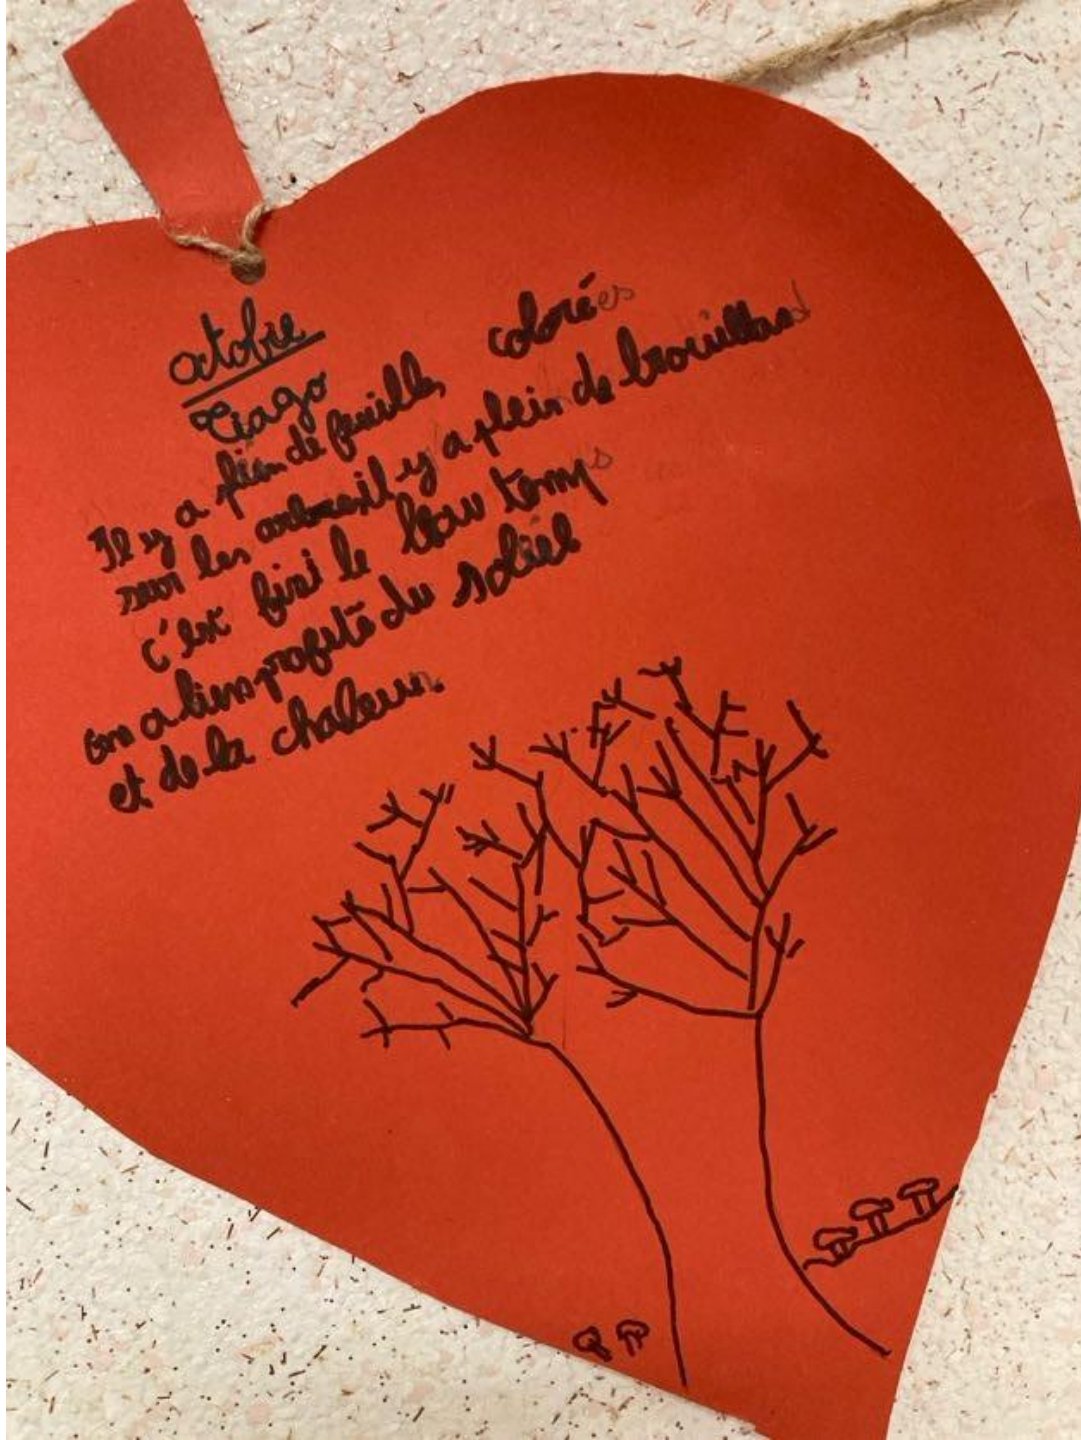 octobre
Tiago
Il y a plein de feuilles colorées
sur les arbres il y a plein de brouillard
c'est fini le beau temps
on a bien profité du soleil
et de la chaleur.